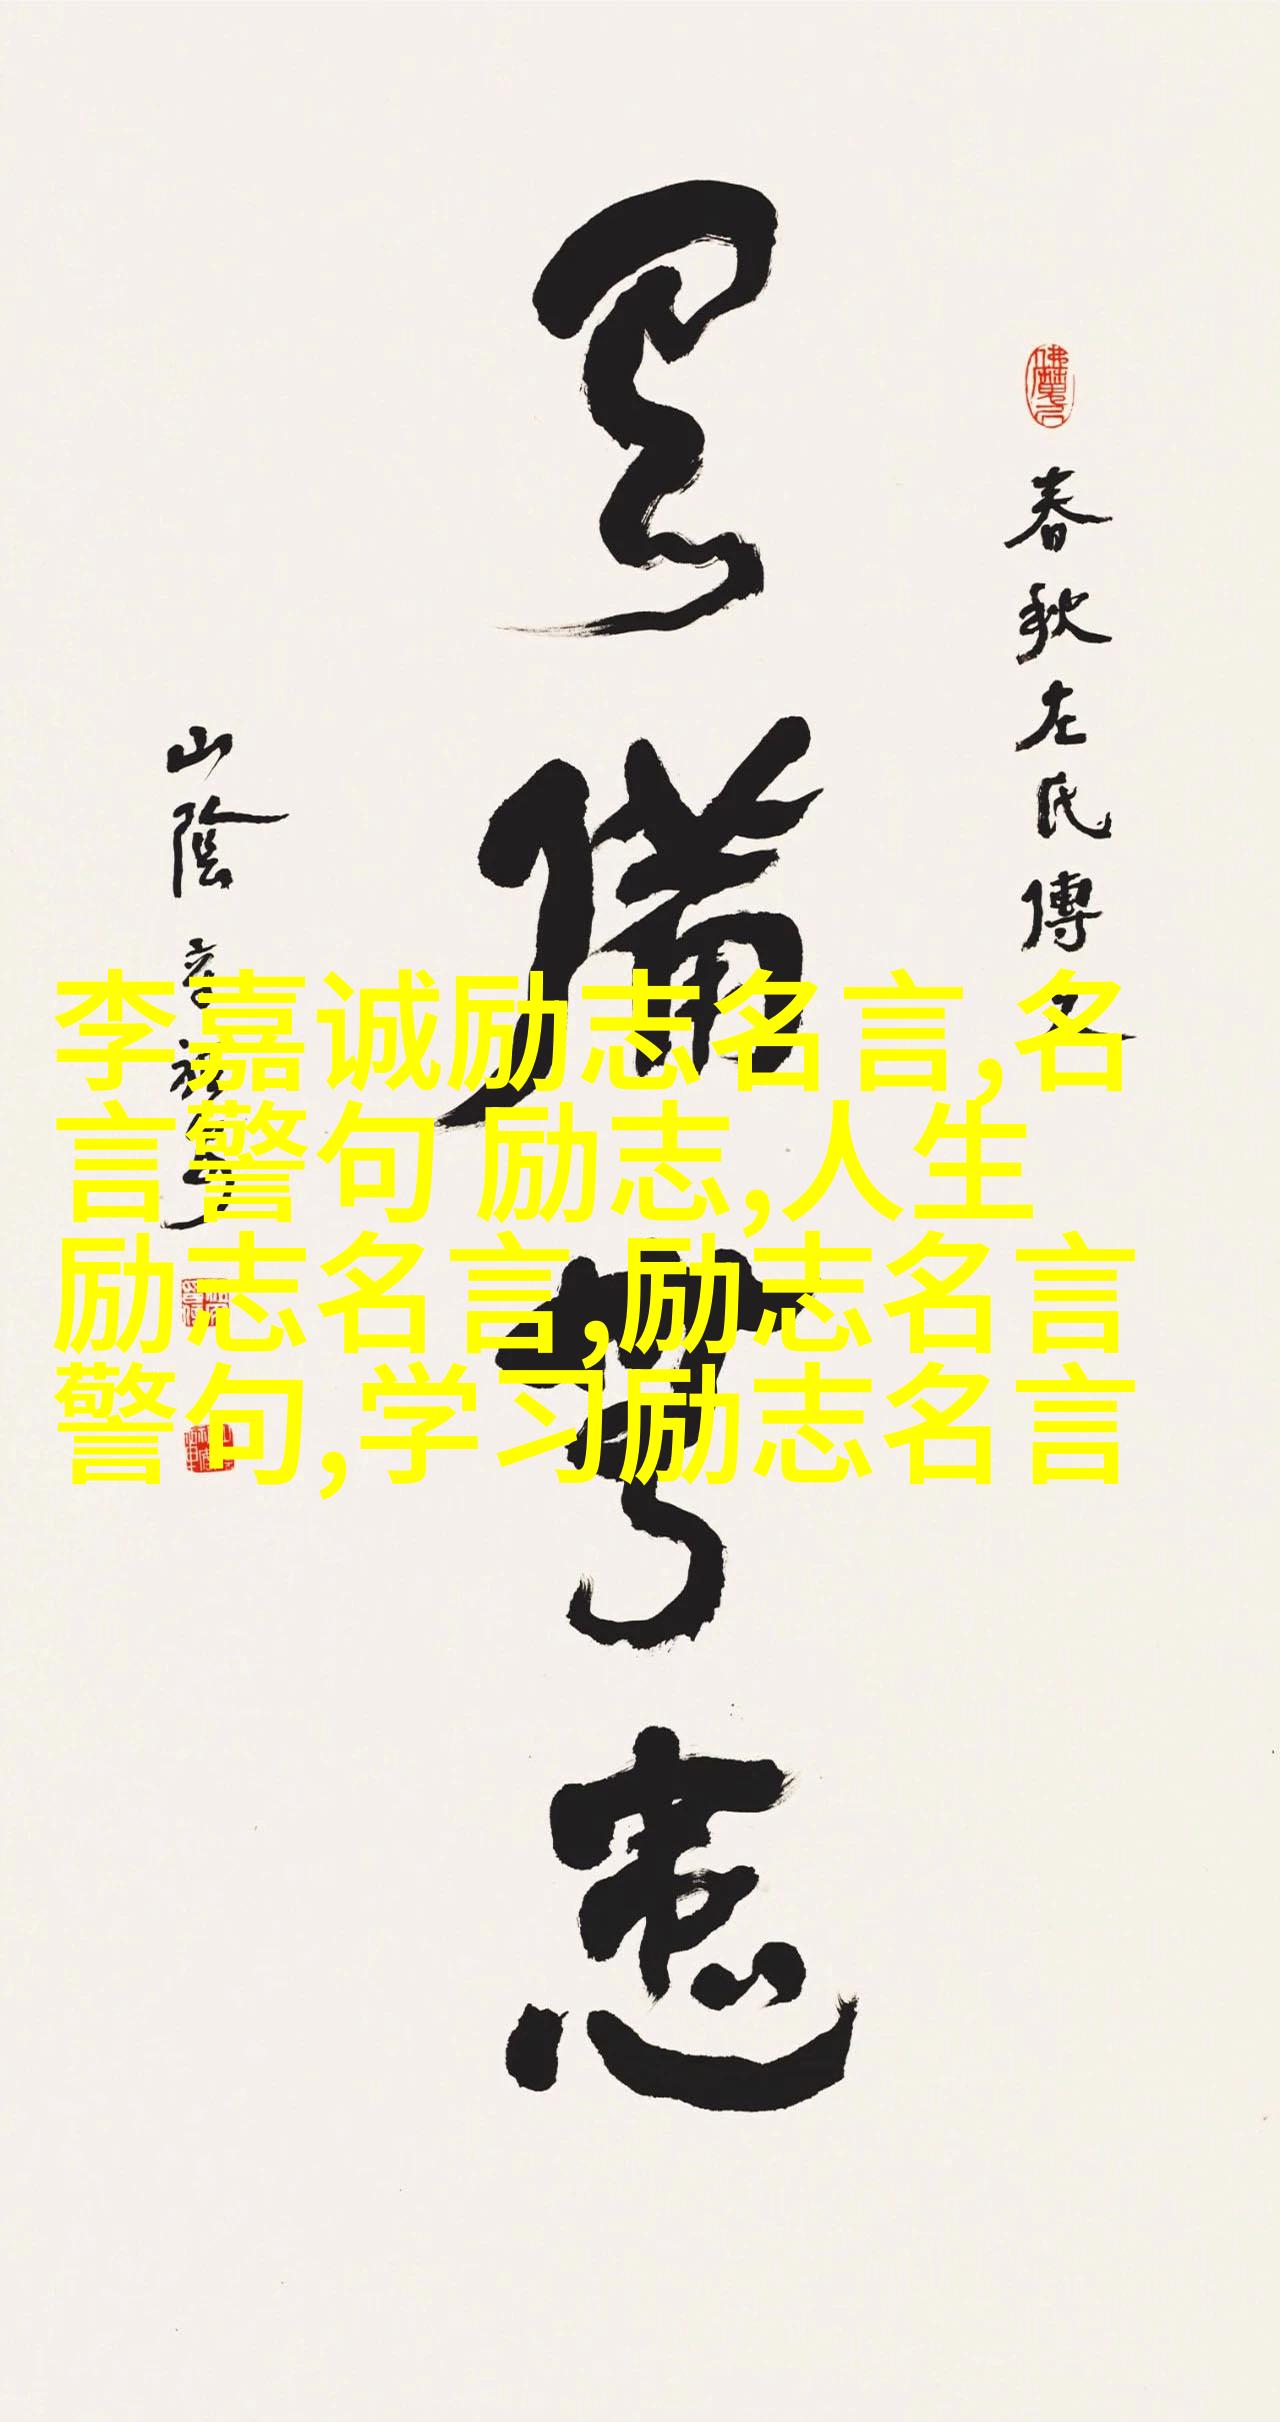 有備無患
春秋左氏傳文
山陰
李嘉诚励志名言,名
言警句 励志,人生
励志名言,励志名言
警句,学习励志名言